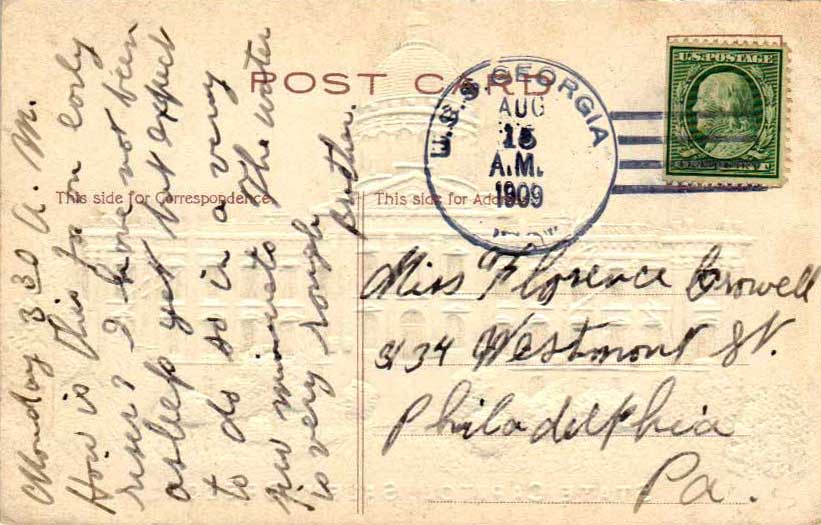 POST CARD
This side for Correspondence.
This side for Address.
U.S.S. GEORGIA
AUG
15
A.M.
1909
U.S. POSTAGE
Miss Florence Crowell
3134 Westmont St.
Philadelphia
Pa.
Monday 3 30 A.M.
How is this for an early
riser? I have not been
asleep yet but expect
to do so in a very
few minuets The water
is very rough
Brother.